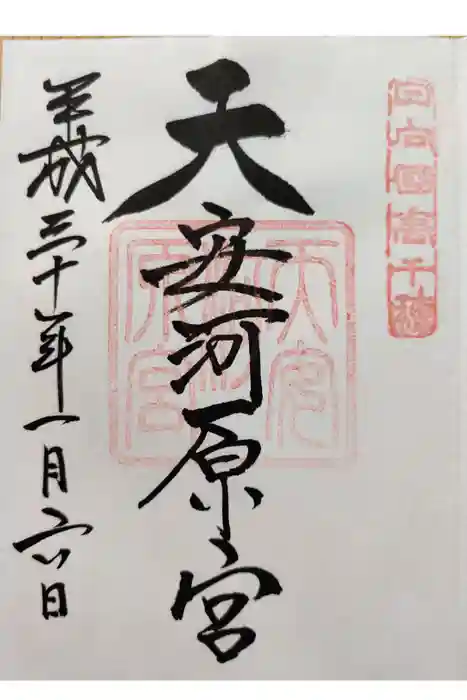 日向国高千穂
天安河原宮
天安河原宮
平成三十年一月六日